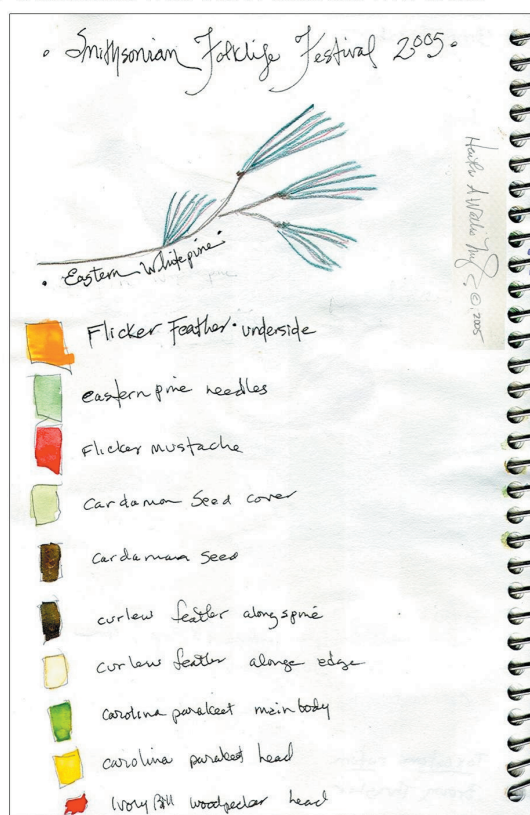 • Smithsonian Folklife Festival 2005 •
• Eastern Whitepine •
© 2005
Flicker Feather • underside
eastern pine needles
Flicker mustache
Cardamon Seed cover
Cardamon Seed
curlew feather along spine
curlew feather alonge edge
carolina parakeet main body
carolina parakeet head
Ivory Bill woodpecker head